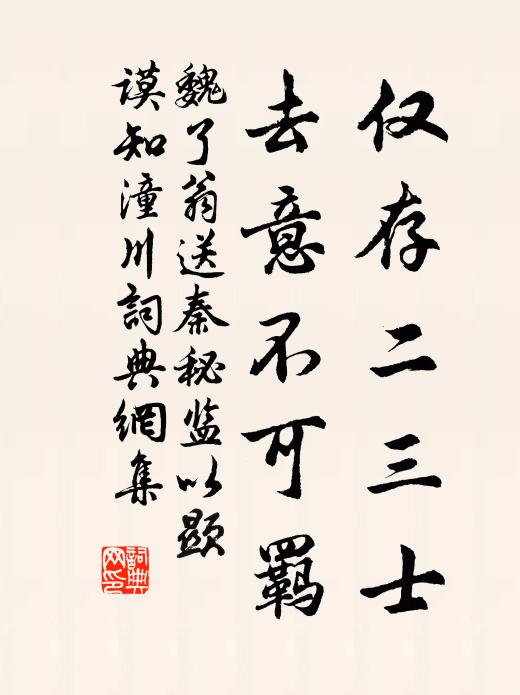 仅存二三士
去意不可羁
魏了翁送秦秘监以顕
谟知潼川詞典網集
詞典网印